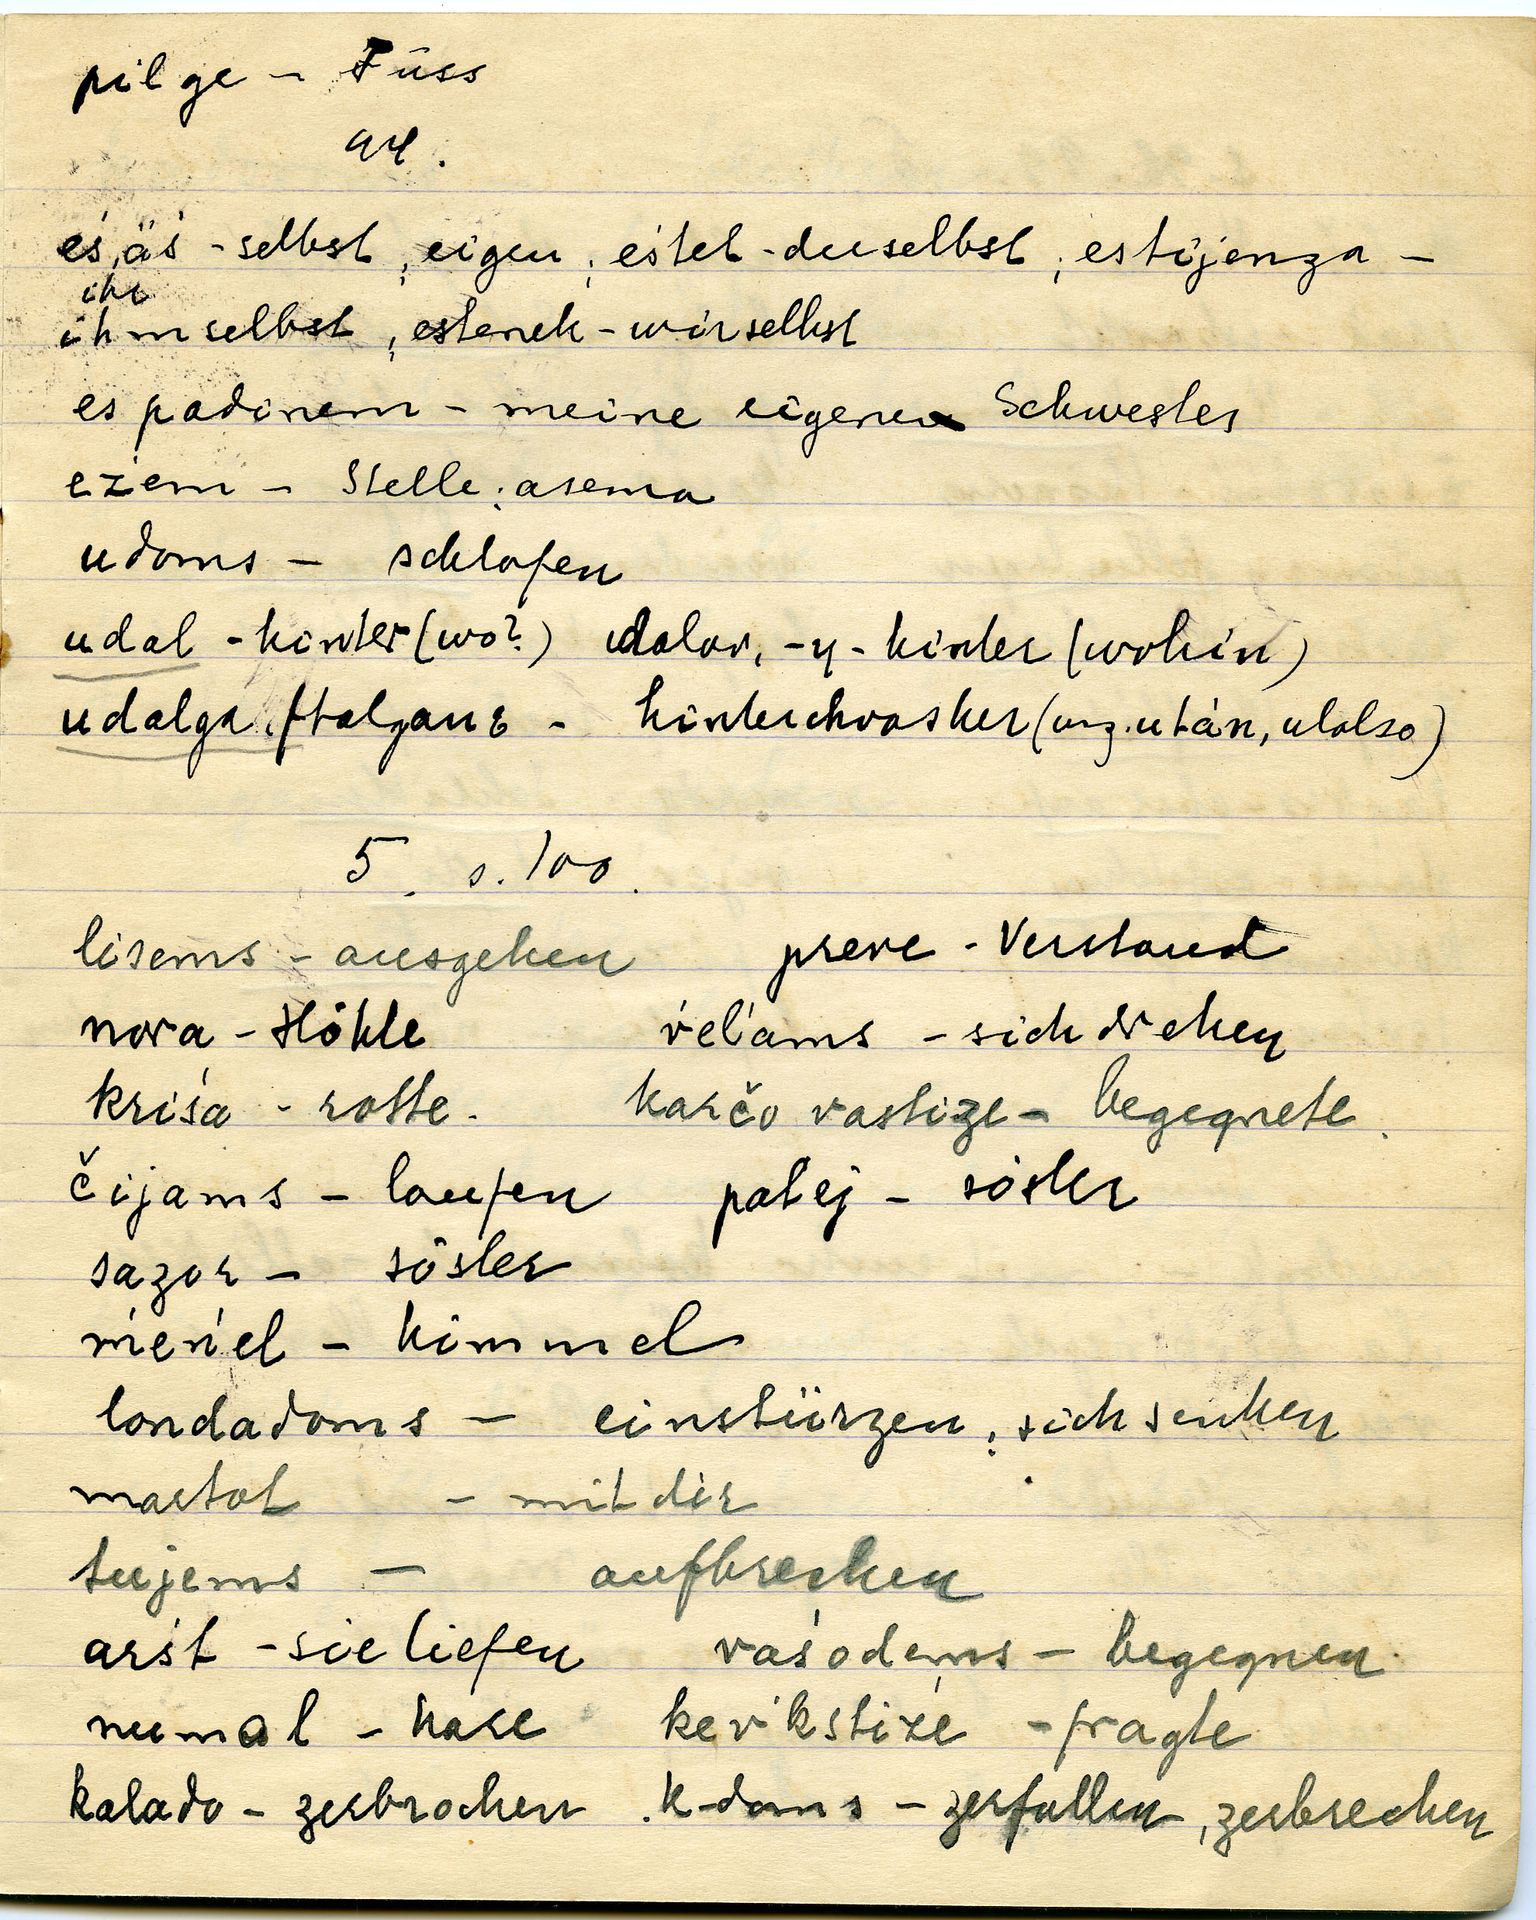 pilge - Füss
94.
eś, äś - selbst, eigen; eśtet - du selbst; estijenza -
ihr
ihm selbst, estenek - wir selbst
es patinem - meine eigene Schwester
ezem - Stelle; asema
udoms - schlafen
udal - hinter (wo?) udalov, -y - hinter (wohin)
udalga - (ung. után, utolso)
5. s. 100.
lisems - ausgehen preve - Verstand
nora - Höhle veĺams - sich drehen
kriśa - ratte. karčo vastize - begegnete.
čijams - laufen patej - söster
sazor - söster
meńel - himmel
londadoms - einstürzen; sich senken
martot - mit dir
tujems - aufbrechen
arśt - sie liefen vaśodems - begegnen
numal - hase kevkstize - fragte
kalado - zerbrochen. k-doms - zerfallen, zerbrechen